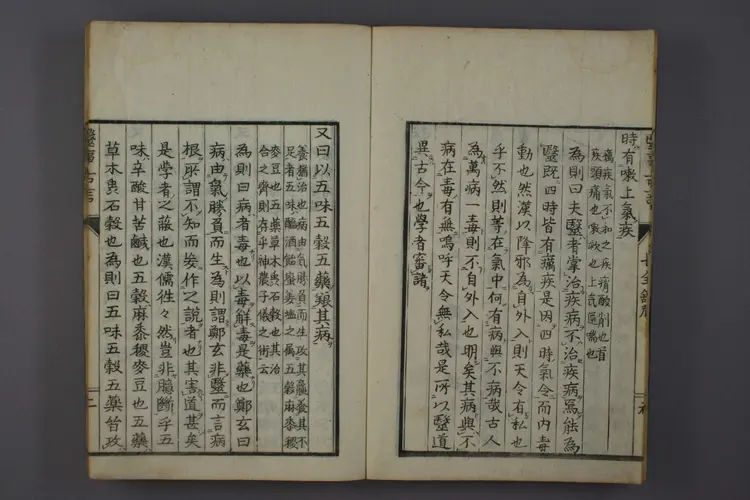 時有嗽上氣疾
癘疾氣不和之疾痟酸削也首
疾頭痛也嗽欬也上氣逆喘也
為則曰夫毉者掌治疾病不治疾病焉能為
毉既四時皆有癘疾是因四時氣令而内毒
動也然漢以降邪為自外入則天令有私也
乎不然則等在氣中何有病與不病哉古人
為萬病一毒則不自外入也明矣其病與不
病在毒有無嗚呼天令無私哉是所以毉道
異古今也學者審諸
又曰以五味五穀五藥養其病
養猶治也病由氣勝負而生攻其羸養其不
足者五味醯酒飴蜜姜塩之属五穀麻黍稷
麥豆也五藥草木虫石穀也其治
合之齊則存乎神農子儀之術云
為則曰病者毒也以毒解毒是藥也鄭玄曰
病由氣勝負而生為則謂鄭玄非毉而言病
根所謂不知而矣作之說者也其害道甚矣
是學者之蔽也漢儒徃々然豈非臆斷乎五
味辛酸甘苦鹹也五穀麻黍稷麥豆也五藥
草木虫石穀也為則曰五味五穀五藥皆攻
毉事古言
二